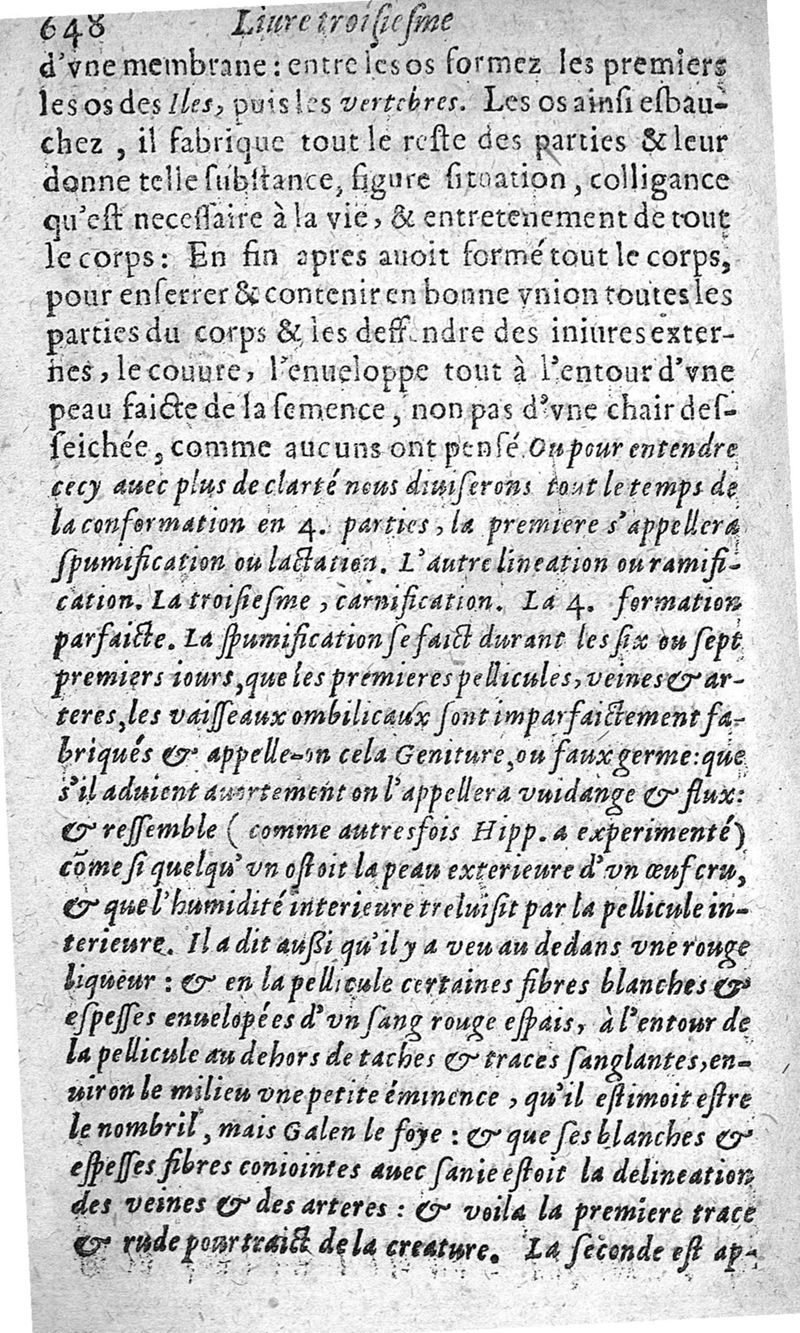 648 Liure troisiesme
d'vne membrane : entre les os formez les premiers
les os des Iles, puis les vertebres. Les os ainsi esbau-
chez , il fabrique tout le reste des parties & leur
donne telle substance, figure situation , colligance
qu'est necessaire à la vie, & entretenement de tout
le corps : En fin apres auoit formé tout le corps,
pour enserrer & contenir en bonne vnion toutes les
parties du corps & les deffendre des iniures exter-
nes , le couure, l'enueloppe tout à l'entour d'vne
peau faicte de la semence , non pas d'vne chair des-
seichée, comme aucuns ont pensé. Ou pour entendre
cecy auec plus de clarté nous diuiserons tout le temps de
la conformation en 4. parties, la premiere s'appellera
spumification ou lactation. L'autre lineation ou ramifi-
cation. La troisiesme , carnification. La 4. formation
parfaicte. La spumification se faict durant les six ou sept
premiers iours, que les premieres pellicules, veines & ar-
teres, les vaisseaux ombilicaux sont imparfaictement fa-
briqués & appelle-on cela Geniture, ou faux germe : que
s'il aduient auortement on l'appellera vuidange & flux :
& ressemble ( comme autresfois Hipp. a experimenté )
cõme si quelqu'vn ostoit la peau exterieure d'vn œuf cru,
& que l'humidité interieure treluisit par la pellicule in-
terieure. Il a dit aussi qu'il y a veu au dedans vne rouge
liqueur : & en la pellicule certaines fibres blanches &
espesses enuelopées d'vn sang rouge espais, à l'entour de
la pellicule au dehors de taches & traces sanglantes, en-
uiron le milieu vne petite éminence , qu'il estimoit estre
le nombril, mais Galen le foye : & que ses blanches &
espesses fibres coniointes auec sanie estoit la delineation
des veines & des arteres : & voila la premiere trace
& rude pourtraict de la creature. La seconde est ap-